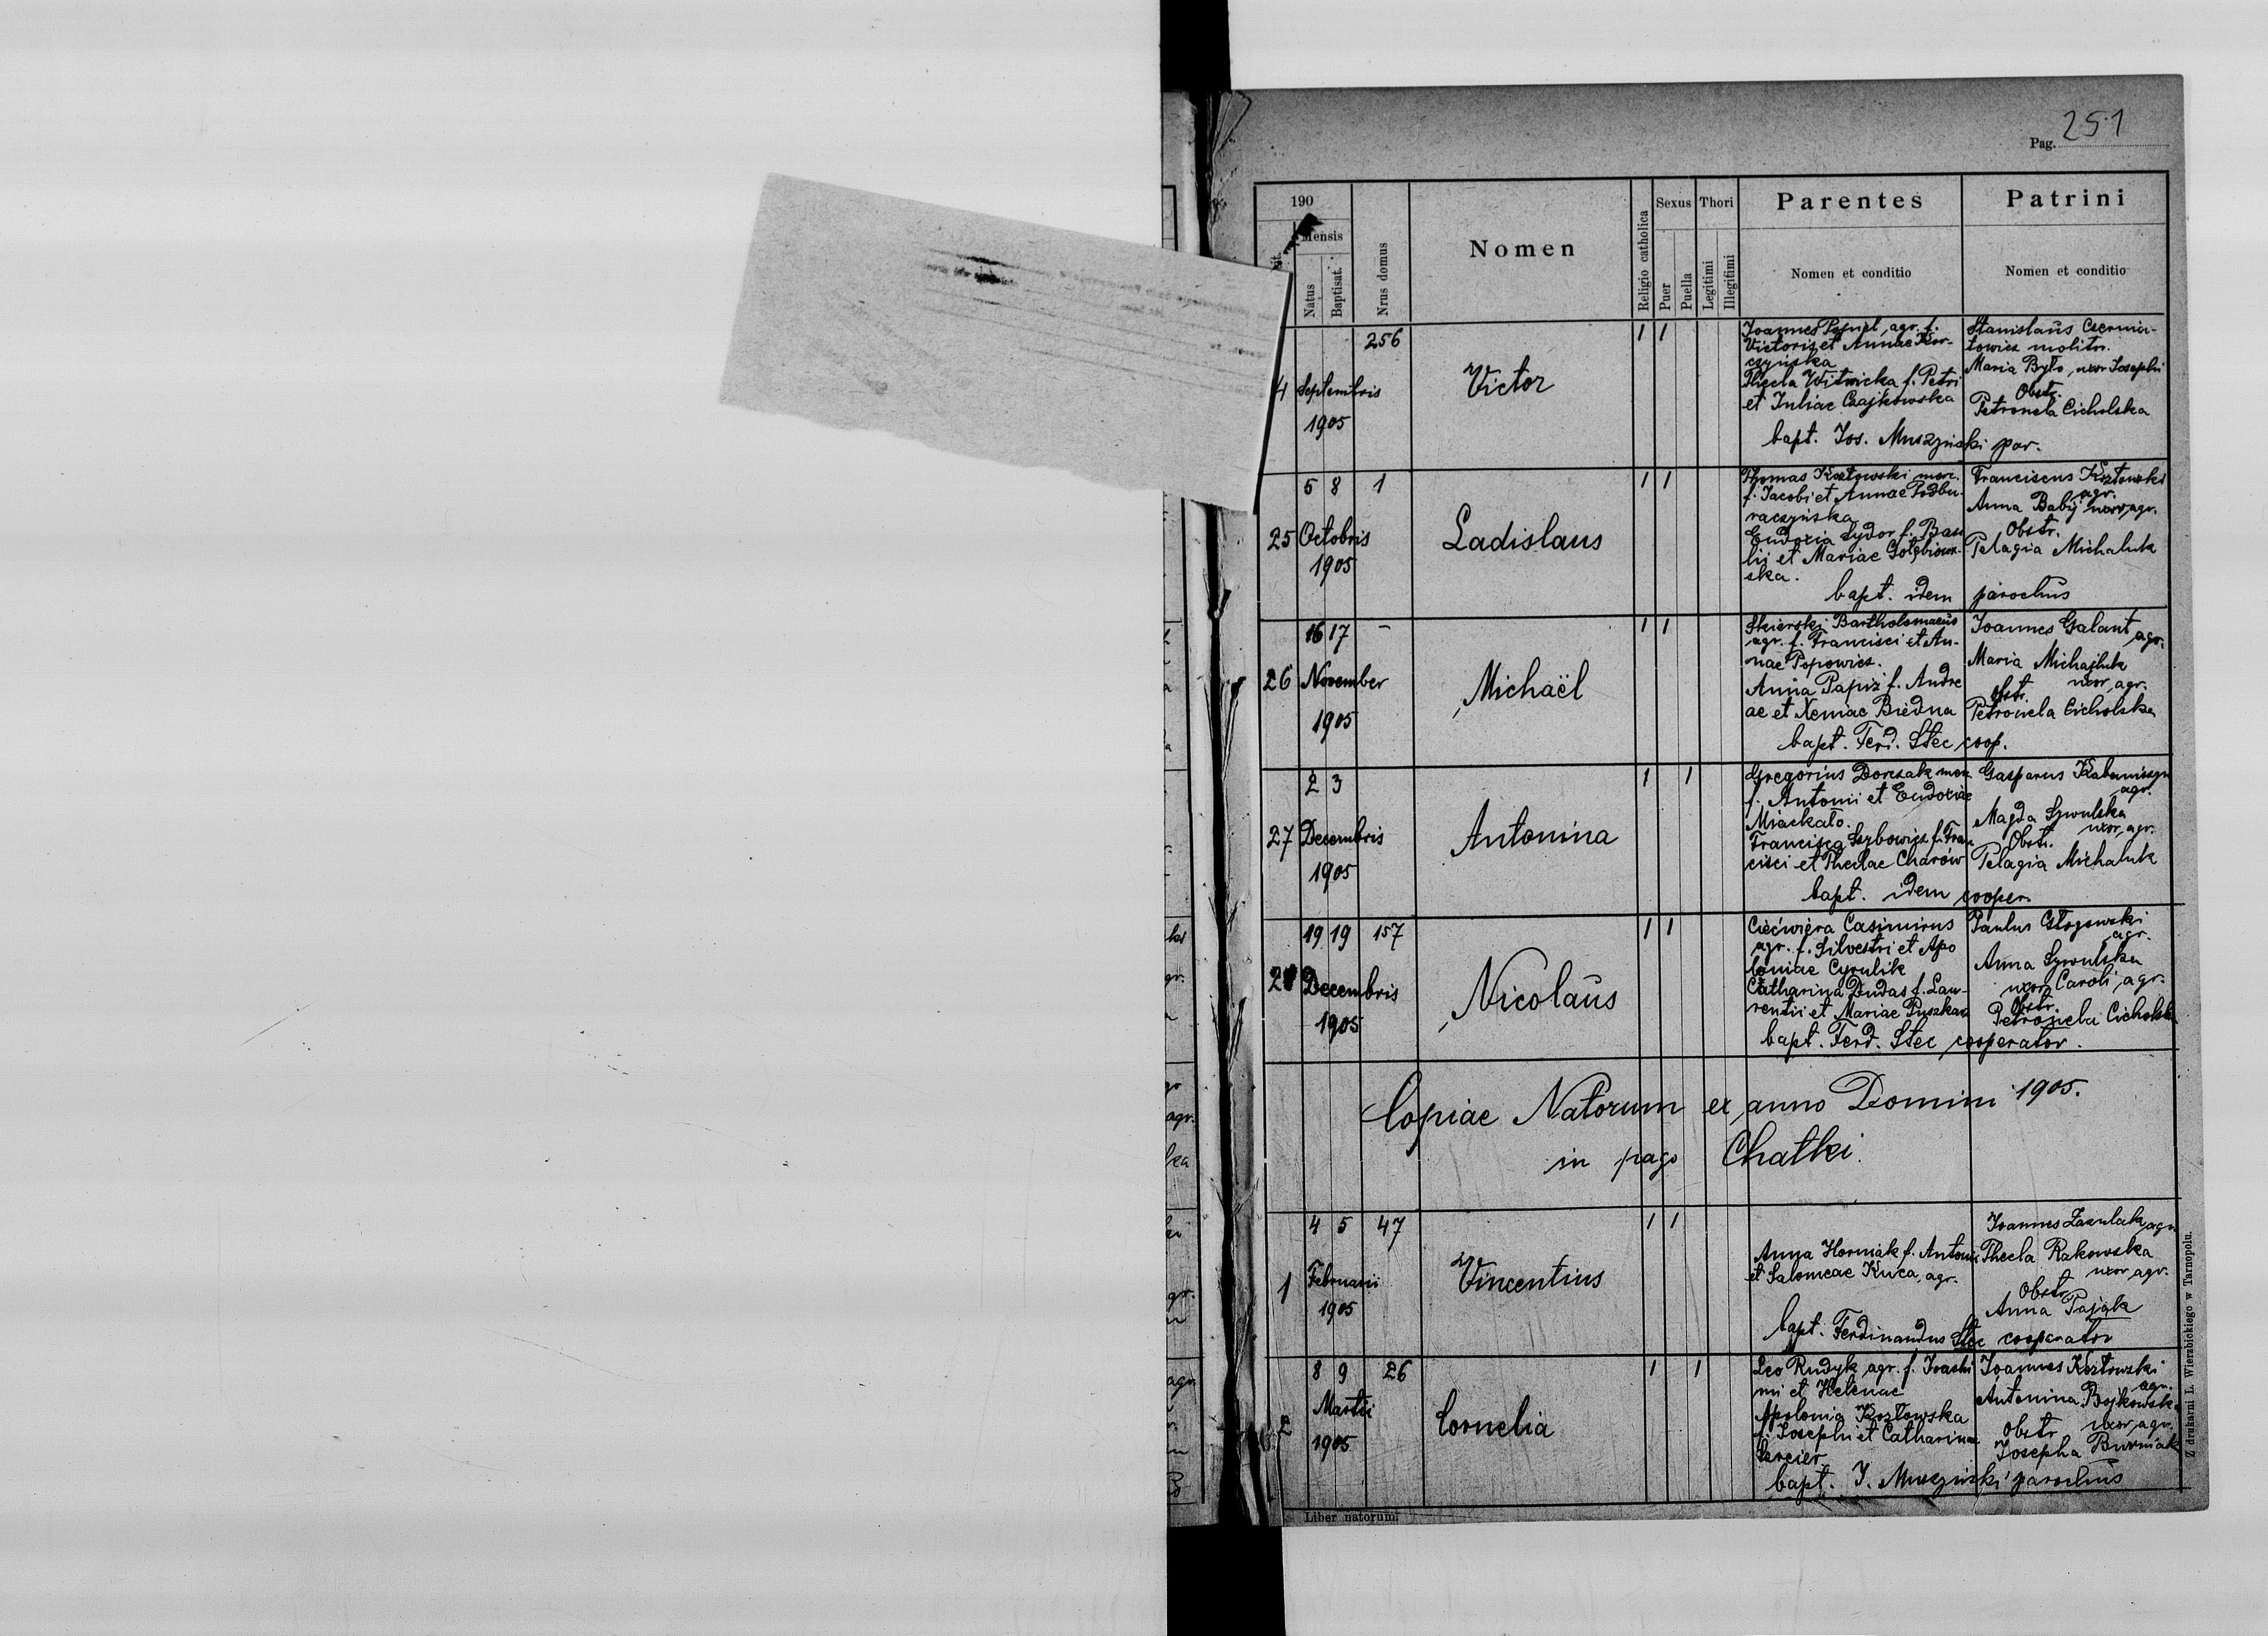 Pag. 251
190
Mensis
Natus
Baptisat.
Nrus domus
Nomen
Religio catholica
Sexus
Puer
Puella
Thori
Legitimi
Illegitimi
Parentes
Nomen et conditio
Patrini
Nomen et conditio
256
4 Septembris
1905
Victor
1 1
Joannes agr. f.
Victoris et Annae Kor-
czyńska
Thecla Witwicka f. Petri
et Juliae Czajkowska
Stanislaus Czernia-
towicz molitor.
Maria Było, uxor Josephi
Obstr.
Petronela Cicholska
bapt. Jos. Muszyński par.
5 8 1
25 Octobris
1905
Ladislaus
1 1
Thomas Kozłowski merc.
f. Jacobi et Annae Podbu-
raczyńska
Eudoxia Sydor f. Basi
lii et Mariae Gołębiow-
ska.
Franciscus Kozłowski
agr.
Anna Babij uxor, agr.
Obstr.
Pelagia Michaluk
bapt. idem parochus
16 17 -
26 November
1905
Michaël
1 1
Skierski Bartholomaeus
agr. f. Francisci et An-
nae Popowicz.
Anna Papiż f. Andre
ae et Xeniae Biedna
Joannes Galant agr.
Maria Michajluk
uxor, agr.
obstr.
Petronela Cicholska
bapt. Ferd. Stec coop.
2 3
27 Decembris
1905
Antonina
1 1
Gregorius Dorczak mer.
f. Antonii et Eudoxiae
Miackało.
Francisca Szybowicz f. Fran
cisci et Theclae Charów
Gasparus
agr.
Magda Sywulska
uxor, agr.
Obstr.
Pelagia Michaluk
bapt. idem cooper.
19 19 157
28 Decembris
1905
Nicolaus
1 1
Ciećwierz Casimirus
agr. f. Silvestri et Apo
loniae Cyrulik
Catharina Dudas f. Lau-
rentii et Mariae Puszkar
Paulus Głogowski
agr.
Anna Sywulska
uxor Caroli, agr.
Obstr.
Petronela Cicholska
bapt. Ferd. Stec cooperator.
Copiae Natorum ex anno Domini 1905.
in pago Chatki.
4 5 47
1 Februarii
1905
Vincentius
1 1
Anna Horniak f. Antonii
et Salomeae Kuca, agr.
Joannes Zazulak, agr.
Thecla Rakowska
uxor, agr.
Obstr.
Anna Pająk
bapt. Ferdinandus Stec cooperator
8 9 26
2 Martii
1905
Cornelia
1 1
Leo Rudyk agr. f. Joachi
mi et Helenae
Apolonia Kozłowska
f. Josephi et Catharinae
Joannes Kozłowski
agr.
Antonina Bojkowska
uxor, agr.
Obstr
Josepha Burniak
bapt. J. Muszyński parochus
Liber natorum.
Z drukarni L. Wierzbickiego w Tarnopolu.